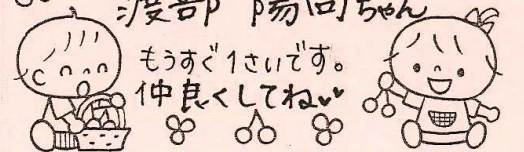 渡部 陽向ちゃん
もうすぐ1さいです。
仲良くしてね♥♥